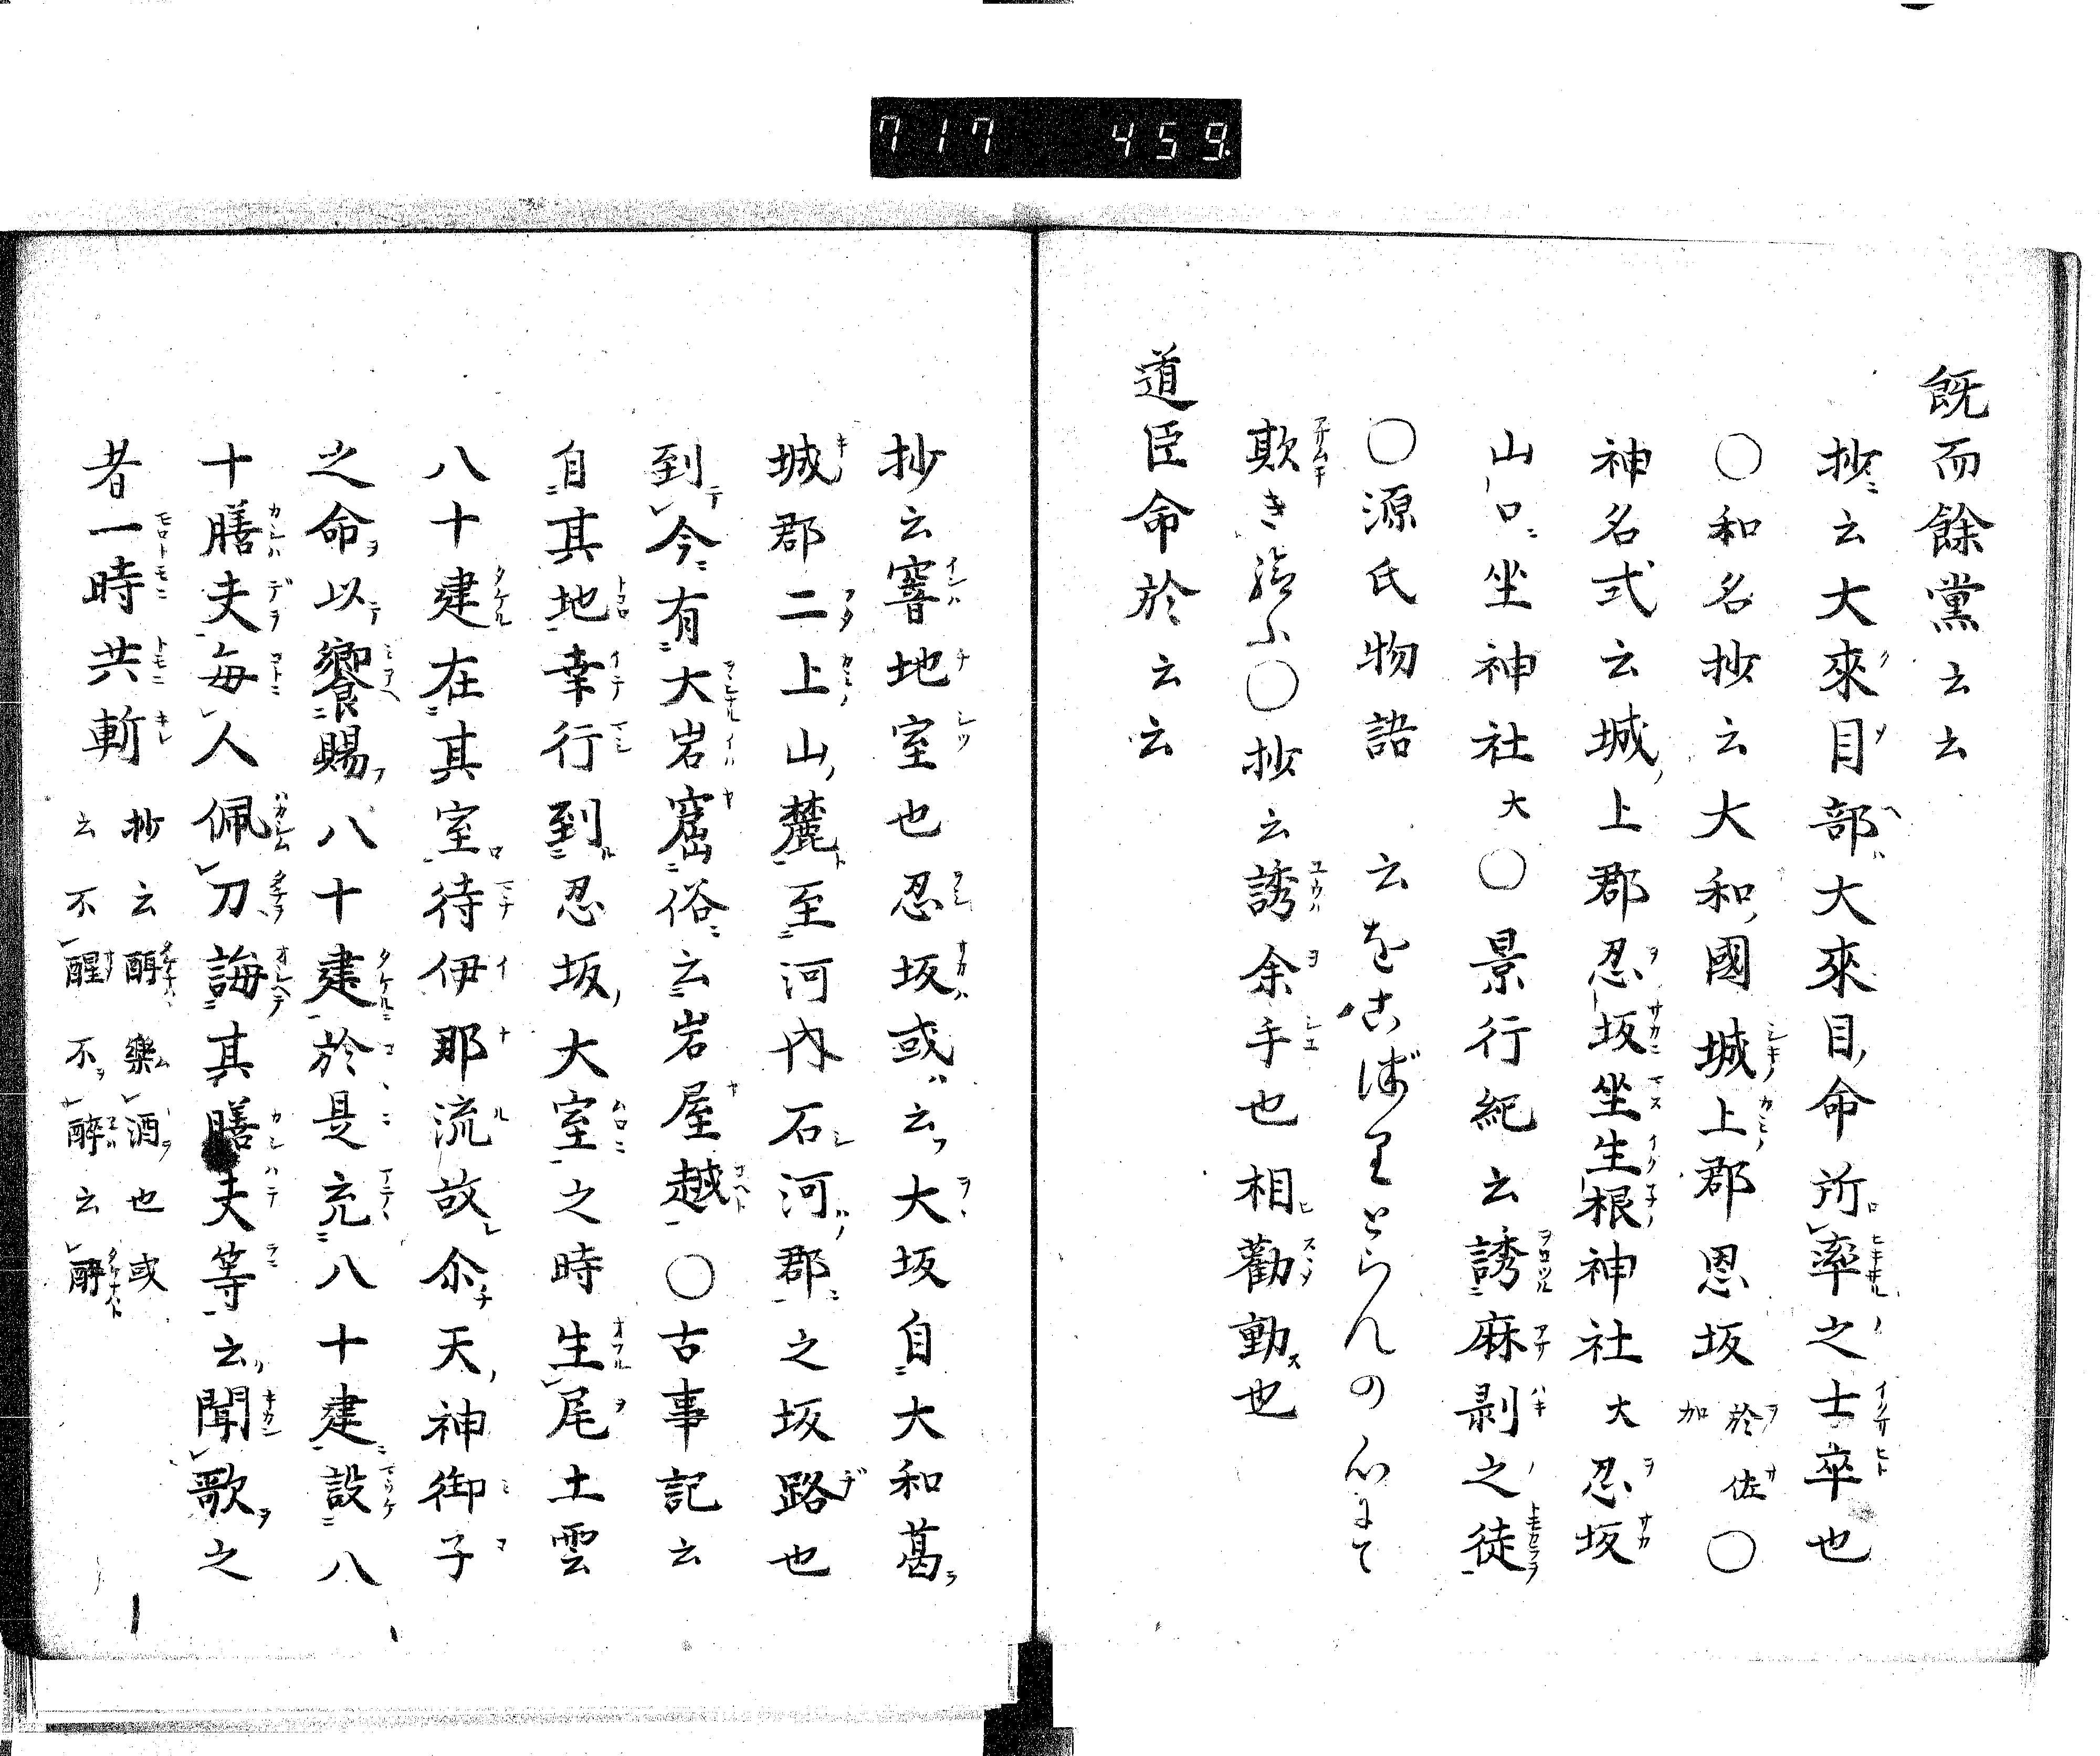 717 459
既而餘黨云云
抄云大來目部大來目命所率之士卒也
○和名抄云大和國城上郡恩坂於佐加○
神名式云城上郡忍坂坐生根神社大忍坂
山口坐神社大○景行紀云誘麻剥之徒
○源氏物語 云をこ りとらんの心にて
欺き給ふ○抄云誘余手也相勸動也
道臣命於云云
抄云窨地室也忍坂或云大坂自大和葛
城郡二上山麓至河内石河郡之坂路也
到今有大岩窟俗云岩屋越○古事記云
自其地幸行到忍坂大室之時生尾土雲
八十建在其室待伊那流故尒天神御子
之命以饗賜八十建於是充八十建設八
十膳夫毎人佩刀誨其膳夫等云聞歌之
者一時共斬 抄云酣樂酒也或
云不醒不醉云酣